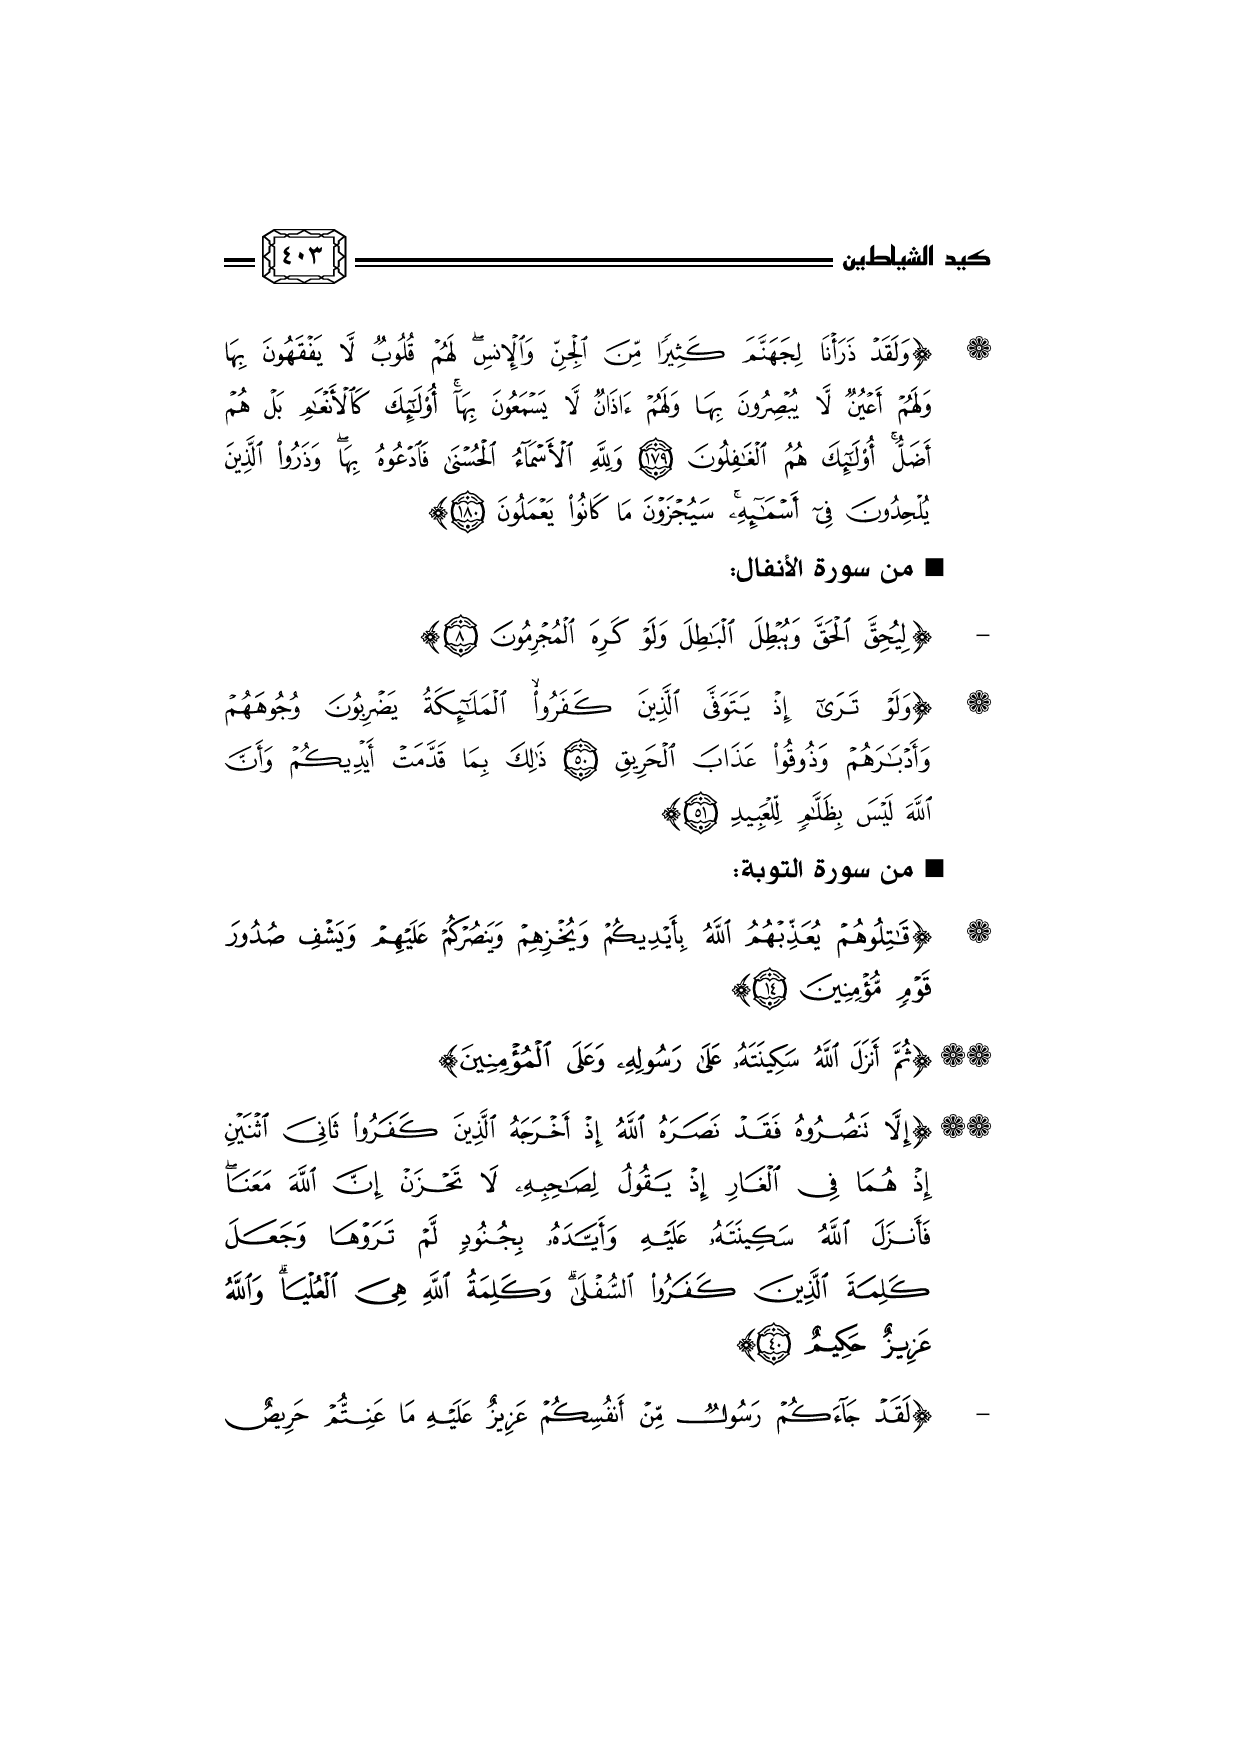 كيد الشياطين ٤٠٣
❁ ﴿وَلَقَدۡ ذَرَأۡنَا لِجَهَنَّمَ كَثِيرٗا مِّنَ ٱلۡجِنِّ وَٱلۡإِنسِۖ لَهُمۡ قُلُوبٞ لَّا يَفۡقَهُونَ بِهَا
وَلَهُمۡ أَعۡيُنٞ لَّا يُبۡصِرُونَ بِهَا وَلَهُمۡ ءَاذَانٞ لَّا يَسۡمَعُونَ بِهَآۚ أُوْلَٰٓئِكَ كَٱلۡأَنۡعَٰمِ بَلۡ هُمۡ
أَضَلُّۚ أُوْلَٰٓئِكَ هُمُ ٱلۡغَٰفِلُونَ ١٧٩ وَلِلَّهِ ٱلۡأَسۡمَآءُ ٱلۡحُسۡنَىٰ فَٱدۡعُوهُ بِهَاۖ وَذَرُواْ ٱلَّذِينَ
يُلۡحِدُونَ فِيٓ أَسۡمَٰٓئِهِۦۚ سَيُجۡزَوۡنَ مَا كَانُواْ يَعۡمَلُونَ ١٨٠﴾
■ من سورة الأنفال:
– ﴿لِيُحِقَّ ٱلۡحَقَّ وَيُبۡطِلَ ٱلۡبَٰطِلَ وَلَوۡ كَرِهَ ٱلۡمُجۡرِمُونَ ٨﴾
❁ ﴿وَلَوۡ تَرَىٰٓ إِذۡ يَتَوَفَّى ٱلَّذِينَ كَفَرُواْۙ ٱلۡمَلَٰٓئِكَةُ يَضۡرِبُونَ وُجُوهَهُمۡ
وَأَدۡبَٰرَهُمۡ وَذُوقُواْ عَذَابَ ٱلۡحَرِيقِ ٥٠ ذَٰلِكَ بِمَا قَدَّمَتۡ أَيۡدِيكُمۡ وَأَنَّ
ٱللَّهَ لَيۡسَ بِظَلَّٰمٖ لِّلۡعَبِيدِ ٥١﴾
■ من سورة التوبة:
❁ ﴿قَٰتِلُوهُمۡ يُعَذِّبۡهُمُ ٱللَّهُ بِأَيۡدِيكُمۡ وَيُخۡزِهِمۡ وَيَنصُرۡكُمۡ عَلَيۡهِمۡ وَيَشۡفِ صُدُورَ
قَوۡمٖ مُّؤۡمِنِينَ ١٤﴾
❁❁ ﴿ثُمَّ أَنزَلَ ٱللَّهُ سَكِينَتَهُۥ عَلَىٰ رَسُولِهِۦ وَعَلَى ٱلۡمُؤۡمِنِينَ﴾
❁❁ ﴿إِلَّا تَنصُرُوهُ فَقَدۡ نَصَرَهُ ٱللَّهُ إِذۡ أَخۡرَجَهُ ٱلَّذِينَ كَفَرُواْ ثَانِيَ ٱثۡنَيۡنِ
إِذۡ هُمَا فِي ٱلۡغَارِ إِذۡ يَقُولُ لِصَٰحِبِهِۦ لَا تَحۡزَنۡ إِنَّ ٱللَّهَ مَعَنَاۖ
فَأَنزَلَ ٱللَّهُ سَكِينَتَهُۥ عَلَيۡهِ وَأَيَّدَهُۥ بِجُنُودٖ لَّمۡ تَرَوۡهَا وَجَعَلَ
كَلِمَةَ ٱلَّذِينَ كَفَرُواْ ٱلسُّفۡلَىٰۗ وَكَلِمَةُ ٱللَّهِ هِيَ ٱلۡعُلۡيَاۗ وَٱللَّهُ
عَزِيزٌ حَكِيمٌ ٤٠﴾
– ﴿لَقَدۡ جَآءَكُمۡ رَسُولٞ مِّنۡ أَنفُسِكُمۡ عَزِيزٌ عَلَيۡهِ مَا عَنِتُّمۡ حَرِيصٌ